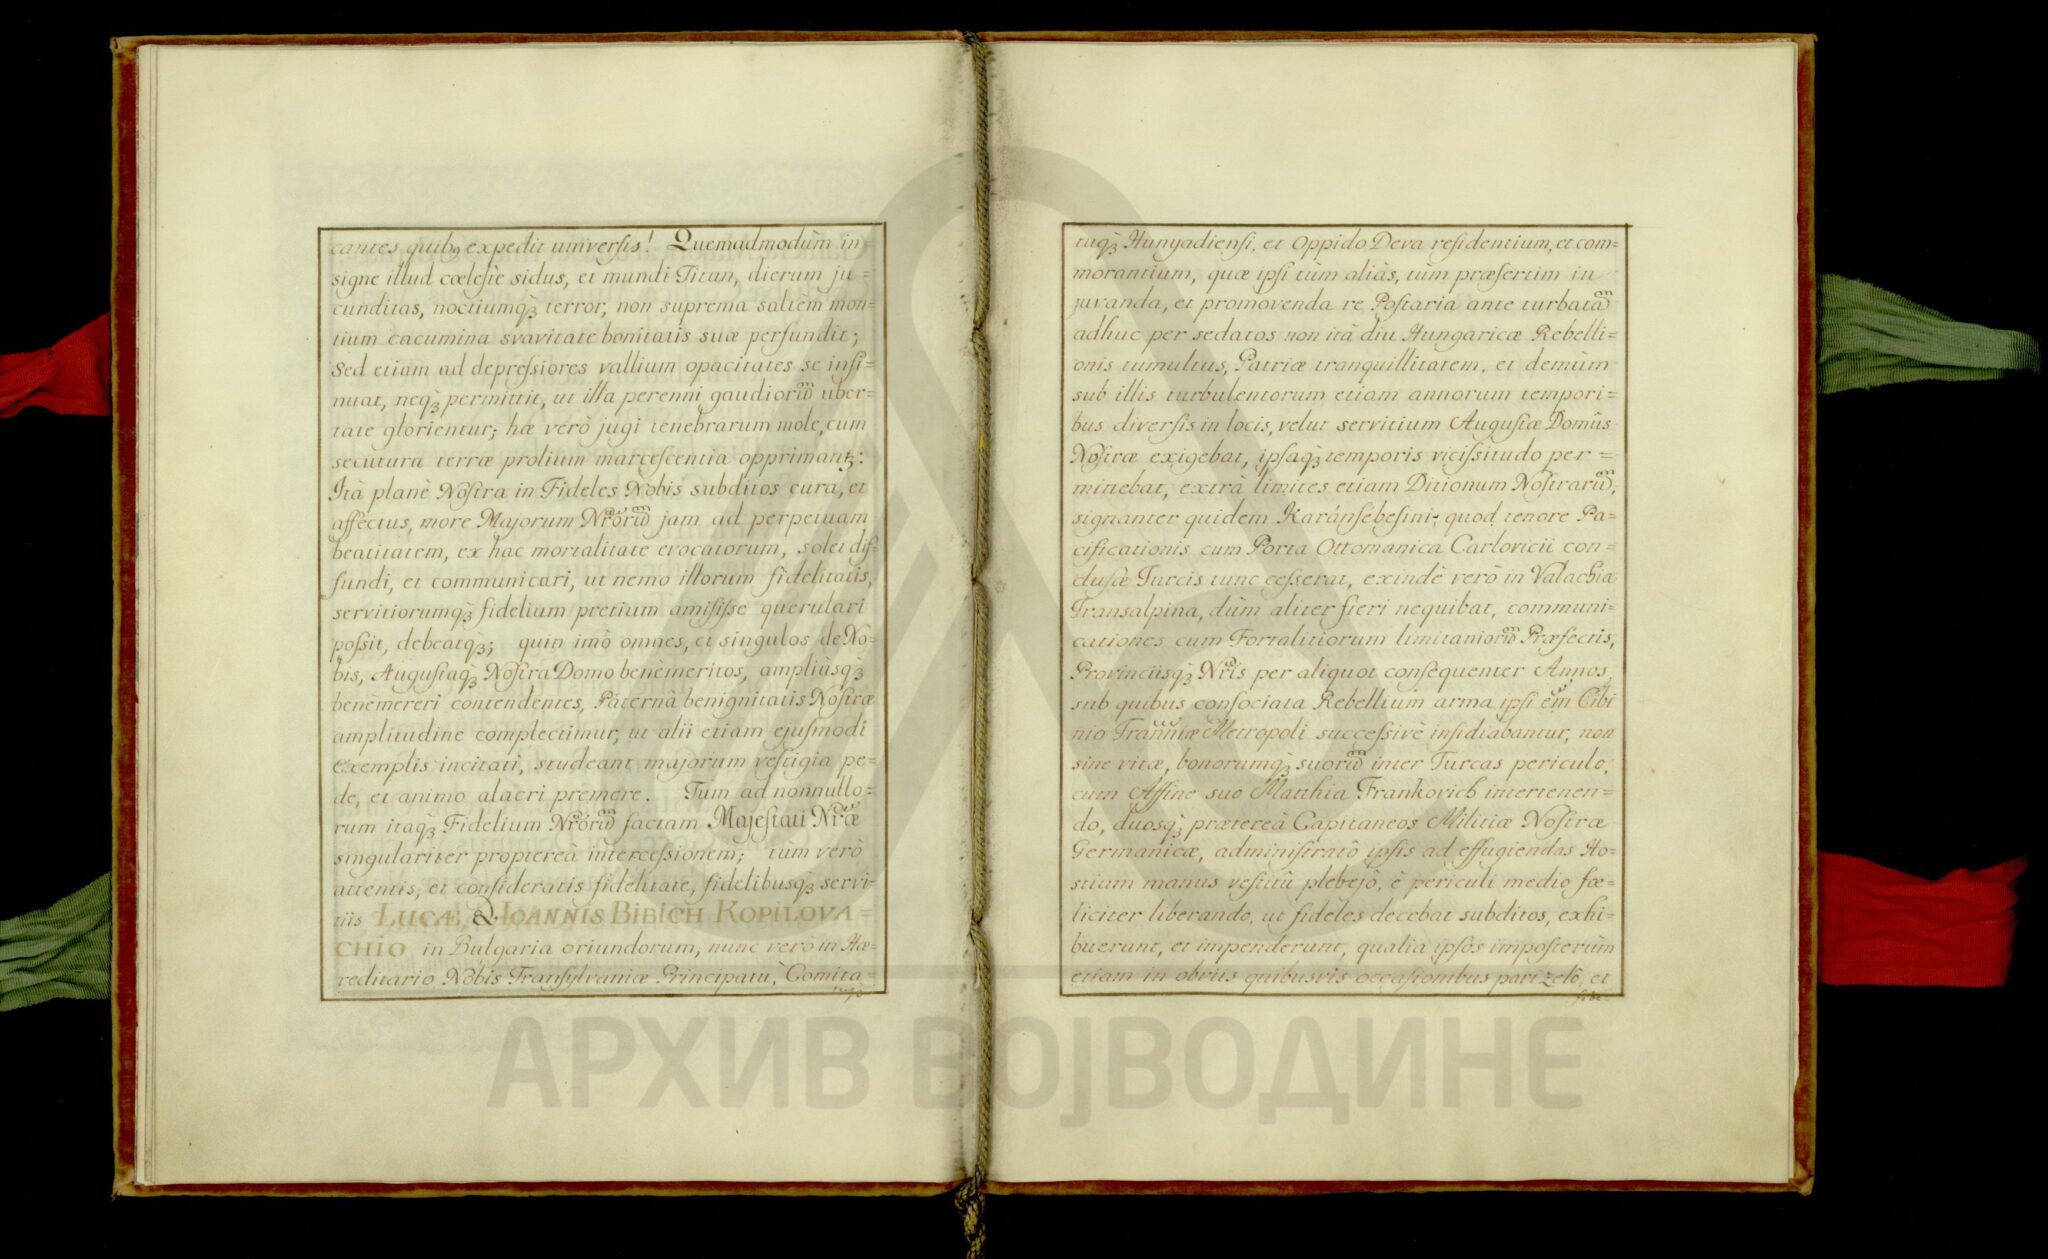 cantes quibꝰ expedit universis! Quemadmodùm in=
signe illud cœleste sidus, et mundi Titan, dierum ju=
cunditas, noctiumqꝫ terror, non suprema saltèm mon=
tium cacumina svavitate bonitatis suæ perfundit;
Sed etiam ad depressiores vallium opacitates se insi=
nuat, neqꝫ permittit, ut illa perenni gaudiorū uber=
tate glorientur; hæ verò jugi tenebrarum mole, cum
secutura terræ prolium marcescentia opprimantꝫ:
Ità planè Nostra in Fideles Nobis subditos cura, et
affectus, more Majorum Nr̃orū jam ad perpetuam
beatitatem, ex hac mortalitate evocatorum, solet dif=
fundi, et communicari, ut nemo illorum fidelitatis,
servitiorumqꝫ fidelium pretium amisisse querulari
possit, debeatqꝫ; quin imò omnes, et singulos de No=
bis, Augustaqꝫ Nostra Domo benèmeritos, ampliùsqꝫ
benèmereri contendentes, Paternâ benignitatis Nostræ
amplitudine complectimur, ut alii etiam ejusmodi
exemplis incitati, studeant majorum vestigia pe=
de, et animo alacri premere. Tum ad nonnullo=
rum itaqꝫ Fidelium Nr̃orū factam Majestati Nr̃æ
singulariter proptereà intercessionem; tùm verò
attentis, et consideratis fidelitate, fidelibusqꝫ servi=
tiis LUCÆ, & IOANNIS BIBICH KOPILOVA=
CHIO in Bulgaria oriundorum, nunc verò in Hæ=
reditario Nobis Transylvaniæ Principatu, Comita=
tuqꝫ
tuqꝫ Hunyadiensi, et Oppido Deva residentium, et com=
morantium, quæ ipsi tùm aliàs, tùm præsertim in
juvanda, et promovenda re Postaria ante turbatā
adhuc per sedatos non ità diu Hungaricæ Rebelli=
onis tumultus, Patriæ tranquillitatem, et demùm
sub illis turbulentorum etiam annorum tempori=
bus diversis in locis, velut servitium Augustæ Domûs
Nostræ exigebat, ipsaqꝫ temporis vicissitudo per=
mittebat, extrà limites etiam Ditionum Nostrarū,
signanter quidem Karánsebesini, quod tenore Pa=
cificationis cum Porta Ottomanica Carlovicii con=
clusæ Turcis tunc cesserat, exindè verò in Valachia
Transalpina, dùm aliter fieri nequibat, communi=
cationes cum Fortalitiorum limitaniorū Præfectis,
Provinciisqꝫ Nr̃is per aliquot consequenter Annos,
sub quibus consociata Rebellium arma ipsi em̃ Cibi
nio Trann̄iæ Metropoli successivè insidiabantur, non
sine vitæ, bonorumqꝫ suorū inter Turcas periculo,
cum Affine suo Matthia Frankovich intertenen=
do, duosqꝫ prætereà Capitaneos Militiæ Nostræ
Germanicæ, administratô ipsis ad effugiendas Ho=
stium manus vestitû plebejô, è periculi medio fœ=
liciter liberando, ut fideles decebat subditos, exhi=
buerunt, et impenderunt, qualia ipsos imposterùm
etiam in obviis quibusvis occasionibus pari zelô, et
АРХИВ ВОЈВОДИНЕ